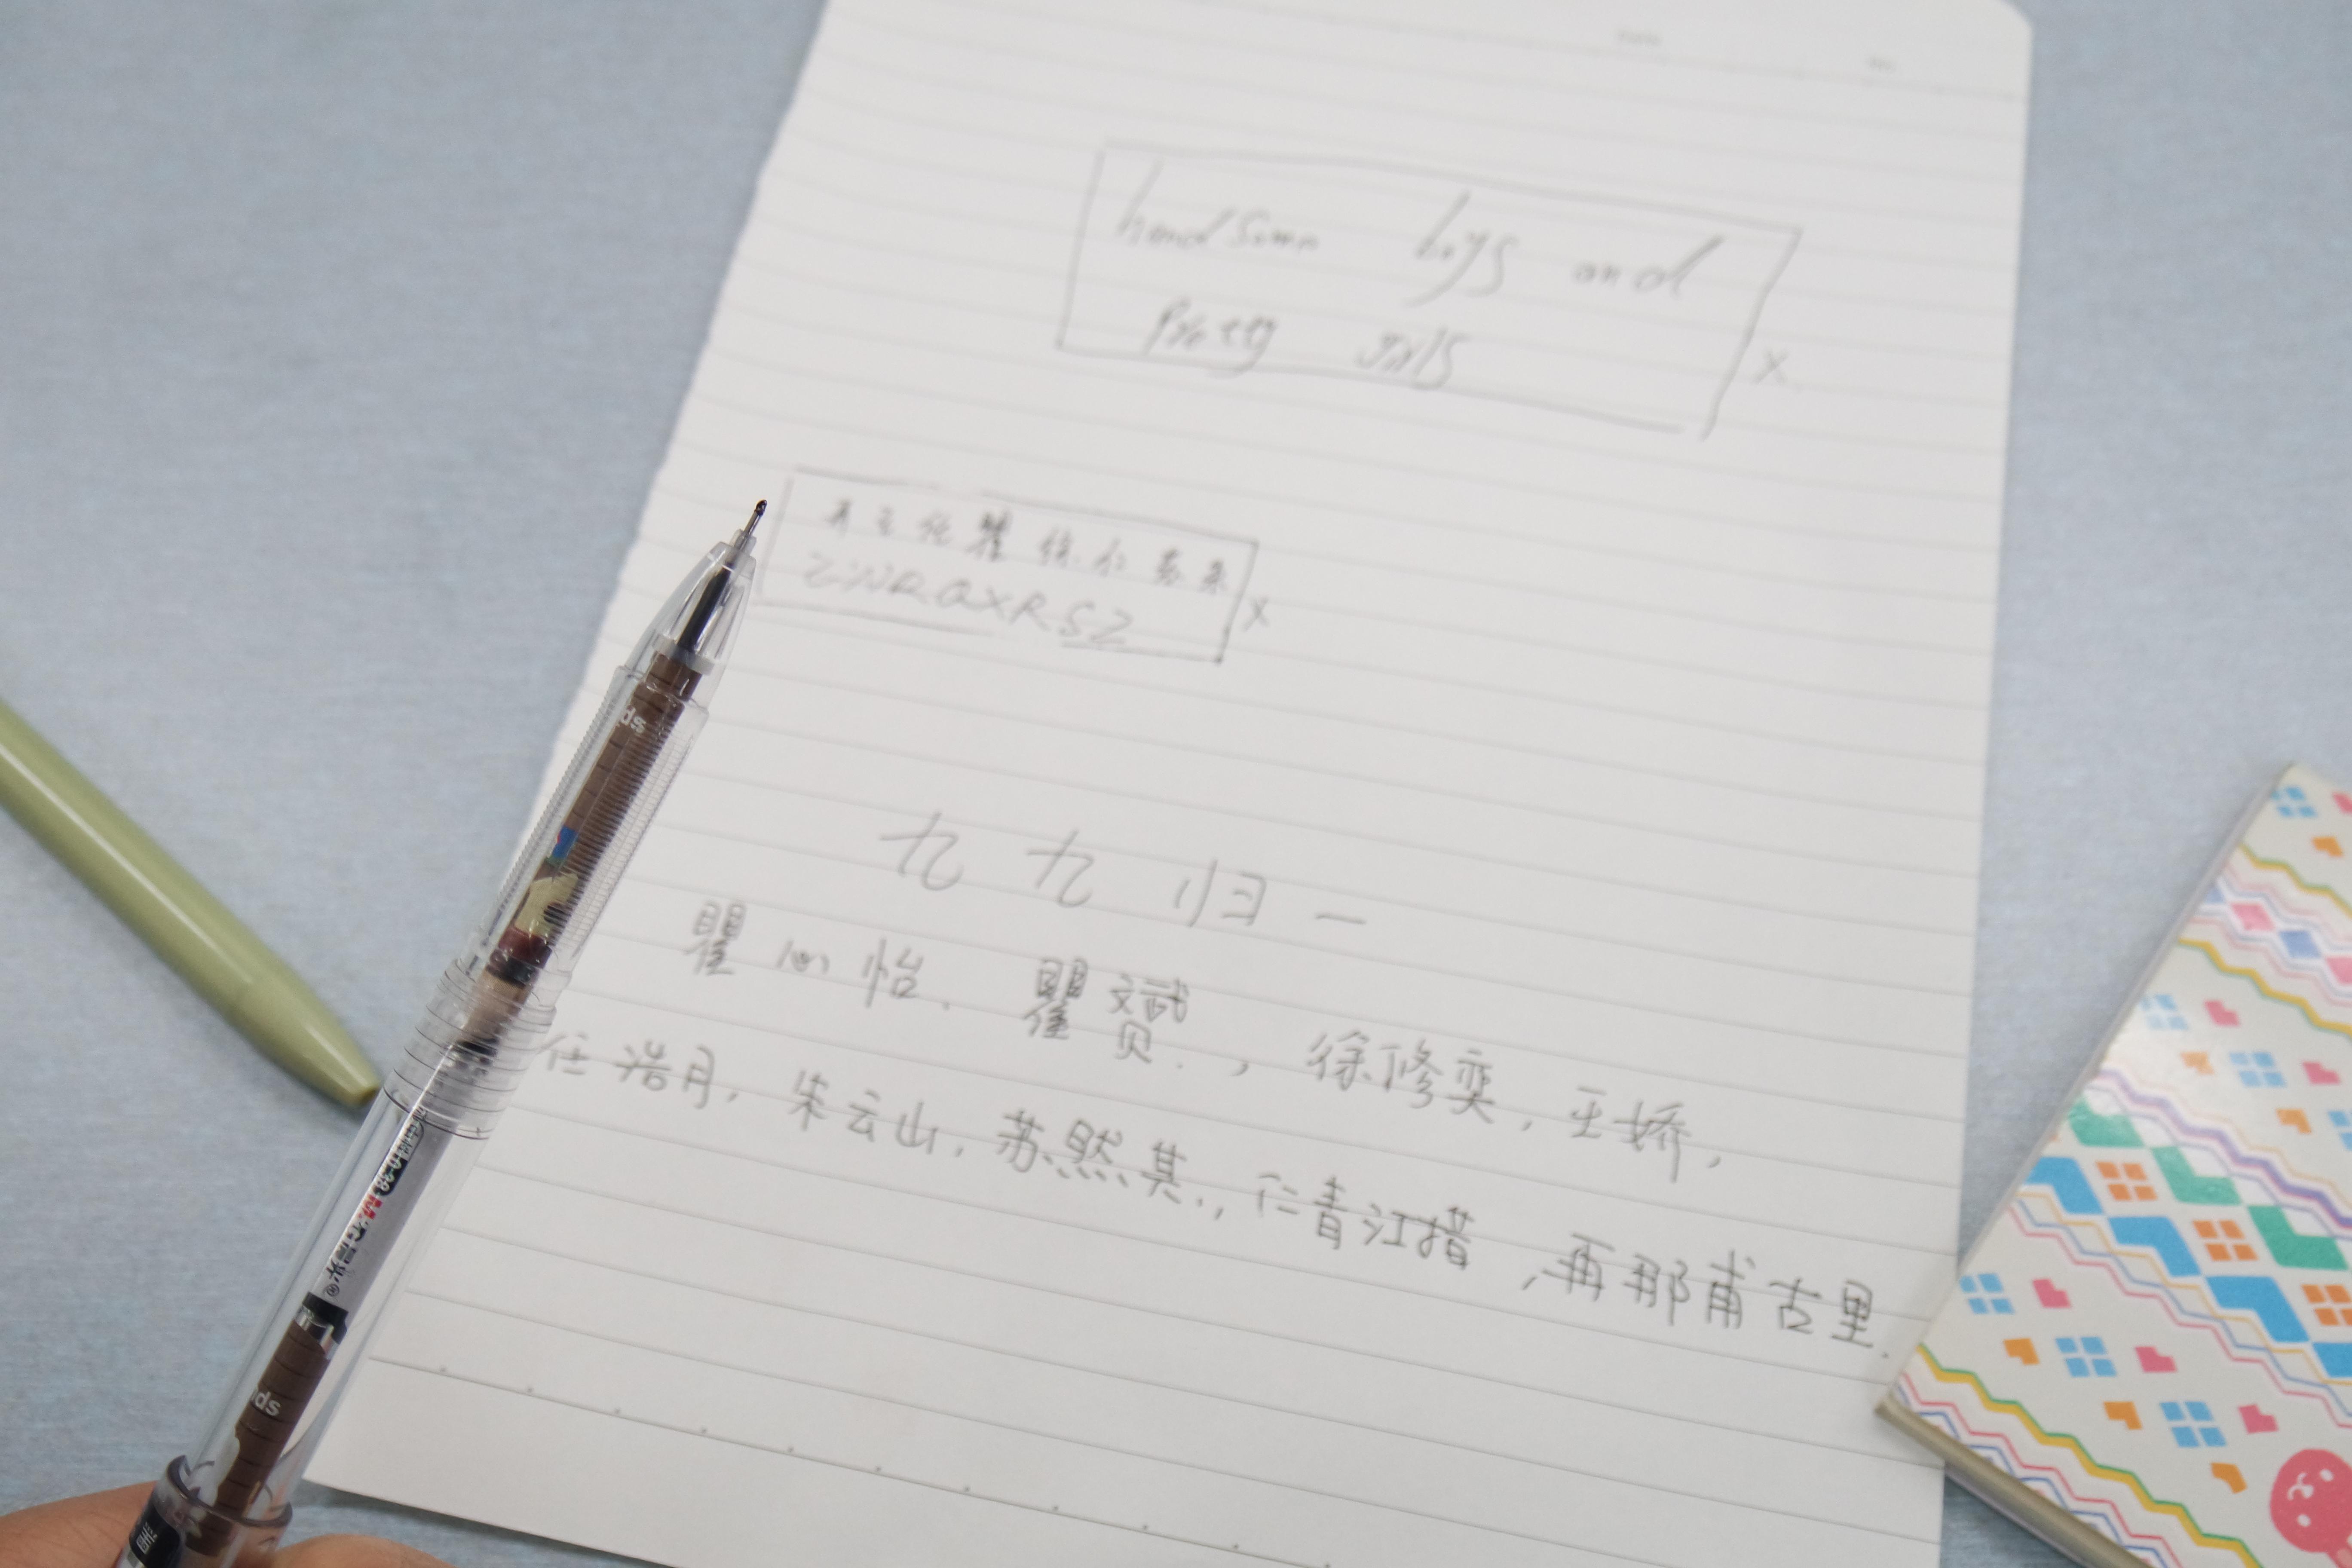 handsome boys and
pretty girls
x
ZWRQXRSZ
x
九九归一
瞿心怡. 瞿文斌贝., 徐修奕, 王娇,
任浩月, 朱云山, 苏然其., 仁青江措, 再那甫古里.
ds
M&G晨光®
ds